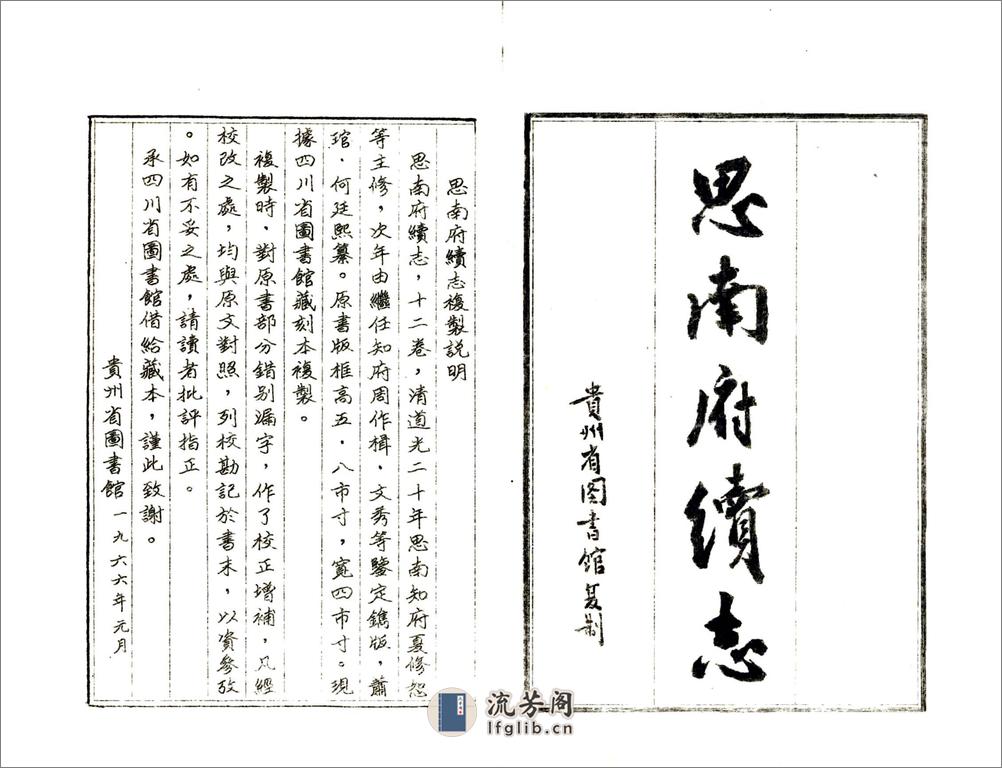 思南府續志
貴州省图書館复制
思南府續志複製説明
思南府續志，十二卷，清道光二十年思南知府夏修恕
等主修，次年由繼任知府周作楫．文秀等鑒定鐫版，蕭
琯．何廷熙纂。原書版框高五．八市寸，寬四市寸。現
據四川省圖書館藏刻本複製。
複製時、對原書部分錯别漏字，作了校正增補，凡經
校改之處，均與原文對照，列校勘記於書末，以資參攷
。如有不妥之處，請讀者批評指正。
承四川省圖書館借給藏本，謹此致謝。
貴州省圖書館 一九六六年元月
流芳阁
lfglib.cn